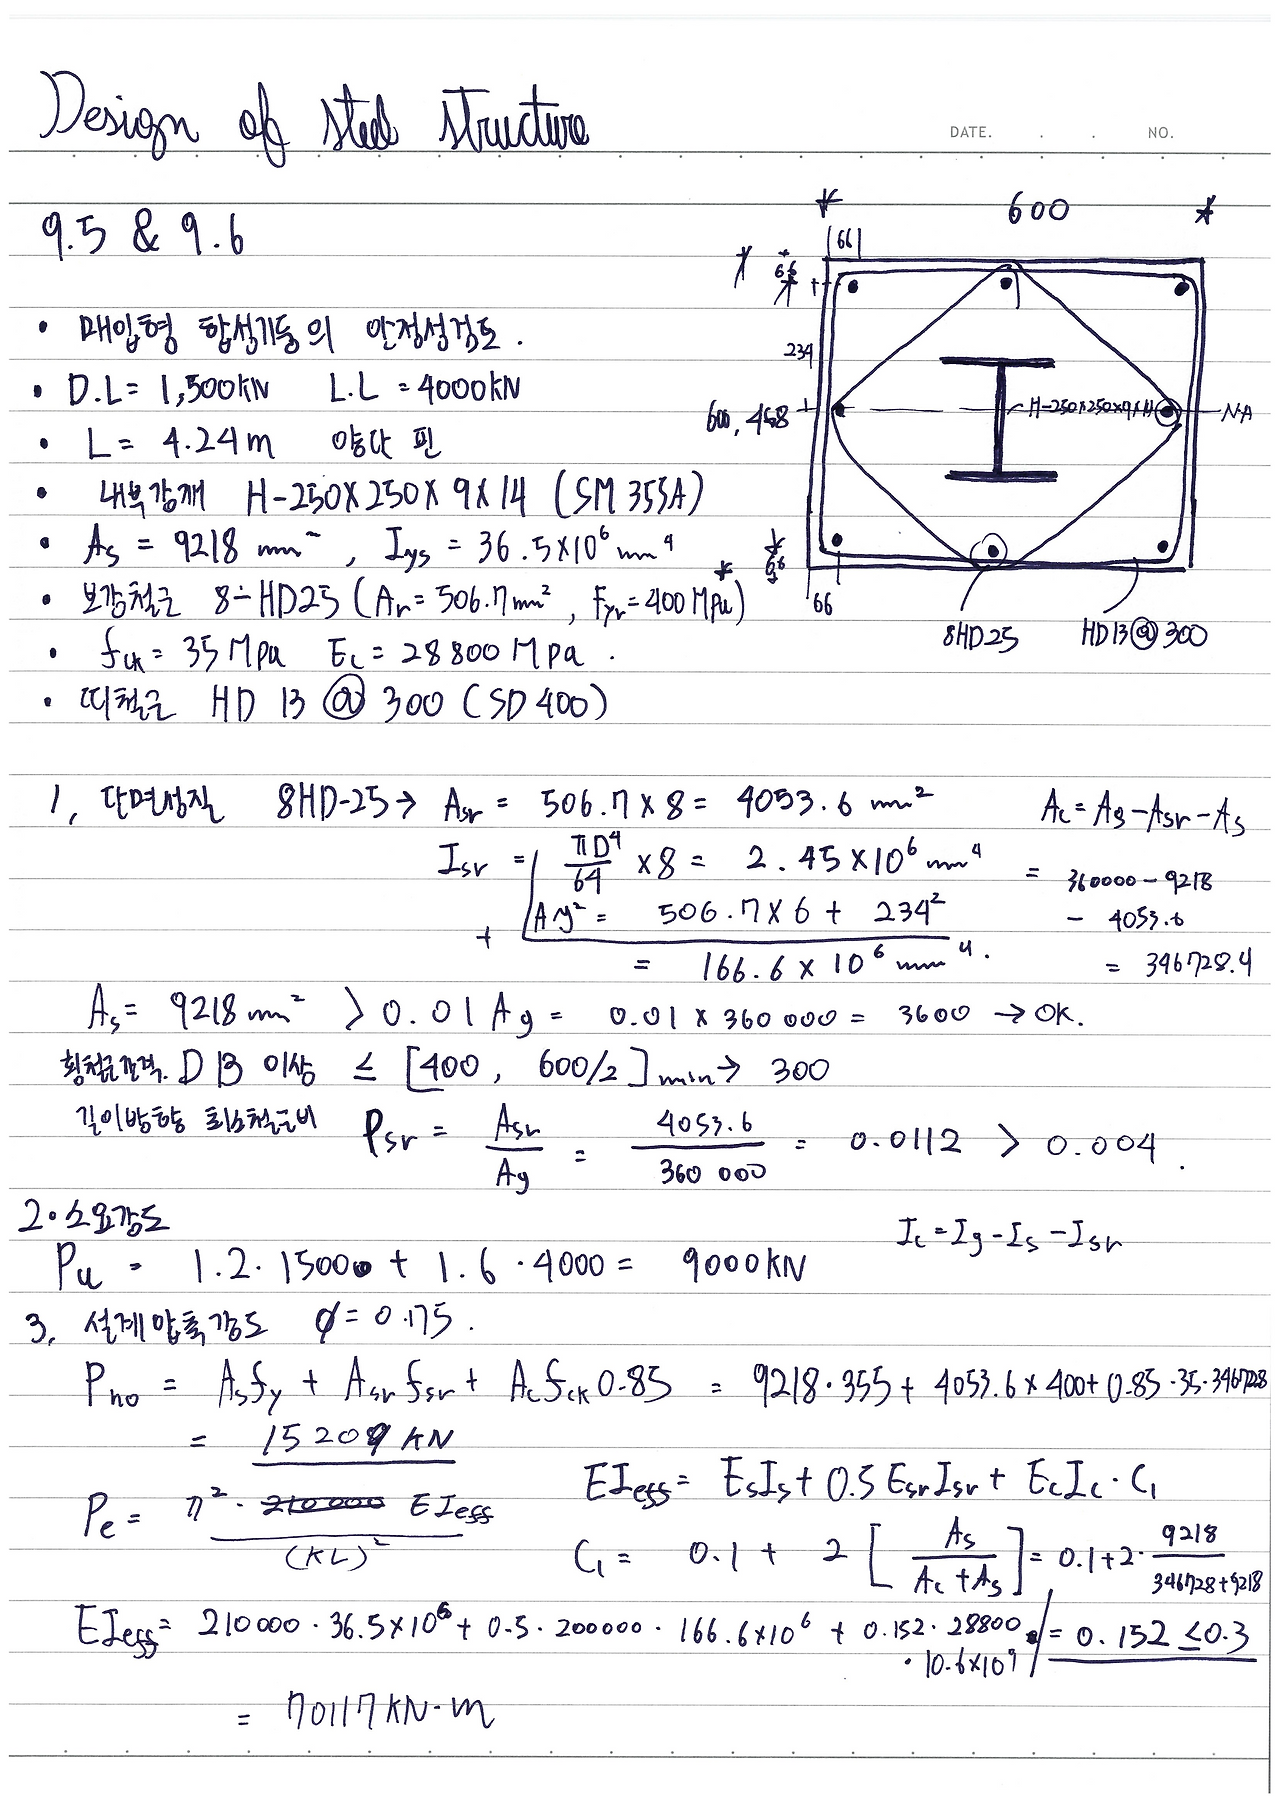 Design of steel structure
DATE. . . NO.
9.5 & 9.6
600
66
66
234
600, 468
H-250×250×9×14
N·A
66
66
8HD25
HD13@300
• 매입형 합성기둥의 안정성검토.
• D.L = 1,500kN L.L = 4000kN
• L = 4.24m 양단 핀
• 내부강재 H-250×250×9×14 (SM355A)
• As = 9218 mm² , Iys = 36.5×10⁶ mm⁴
• 보강철근 8-HD25 (Ar = 506.7mm², Fyr = 400MPa)
• fck = 35MPa Ec = 28800MPa.
• 띠철근 HD 13 @ 300 (SD400)
1, 단면성질 8HD-25 → Asr = 506.7 × 8 = 4053.6 mm²
Isr = πD⁴/64 × 8 = 2.45×10⁶ mm⁴
+ Ay² = 506.7×6 + 234²
= 166.6 × 10⁶ mm⁴.
Ac = Ag - Asr - As
= 360000 - 9218
- 4053.6
= 346728.4
As = 9218 mm² > 0.01 Ag = 0.01 × 360 000 = 3600 → OK.
횡철근간격. D13 이상 ≤ [400, 600/2]min → 300
길이방향 최소철근비 ρsr = Asr/Ag = 4053.6/360 000 = 0.0112 > 0.004.
2. 소요강도
Ic = Ig - Is - Isr
Pu = 1.2·1500 + 1.6·4000 = 9000kN
3, 설계압축강도 φ = 0.75.
Pno = Asfy + Asrfsr + Acfck0.85 = 9218·355 + 4053.6×400 + 0.85·35·346728
= 15209 kN
Pe = π²· 210000 EIeff/(KL)²
EIeff = EsIs + 0.5EsrIsr + EcIc·C1
C1 = 0.1 + 2 [As/(Ac+As)] = 0.1 + 2· 9218/(346728+9218)
= 0.152 ≤ 0.3
EIeff = 210000·36.5×10⁶ + 0.5·200000·166.6×10⁶ + 0.152·28800
·10.6×10⁹
= 70117 kN·m